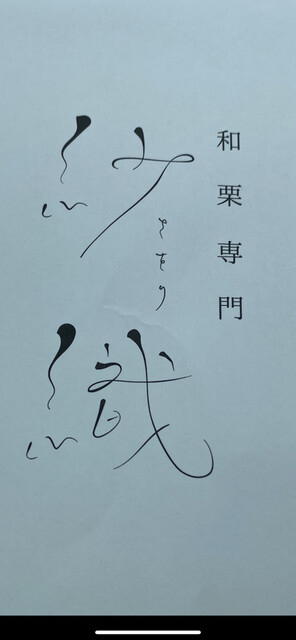 和栗専門
紗織
さをり